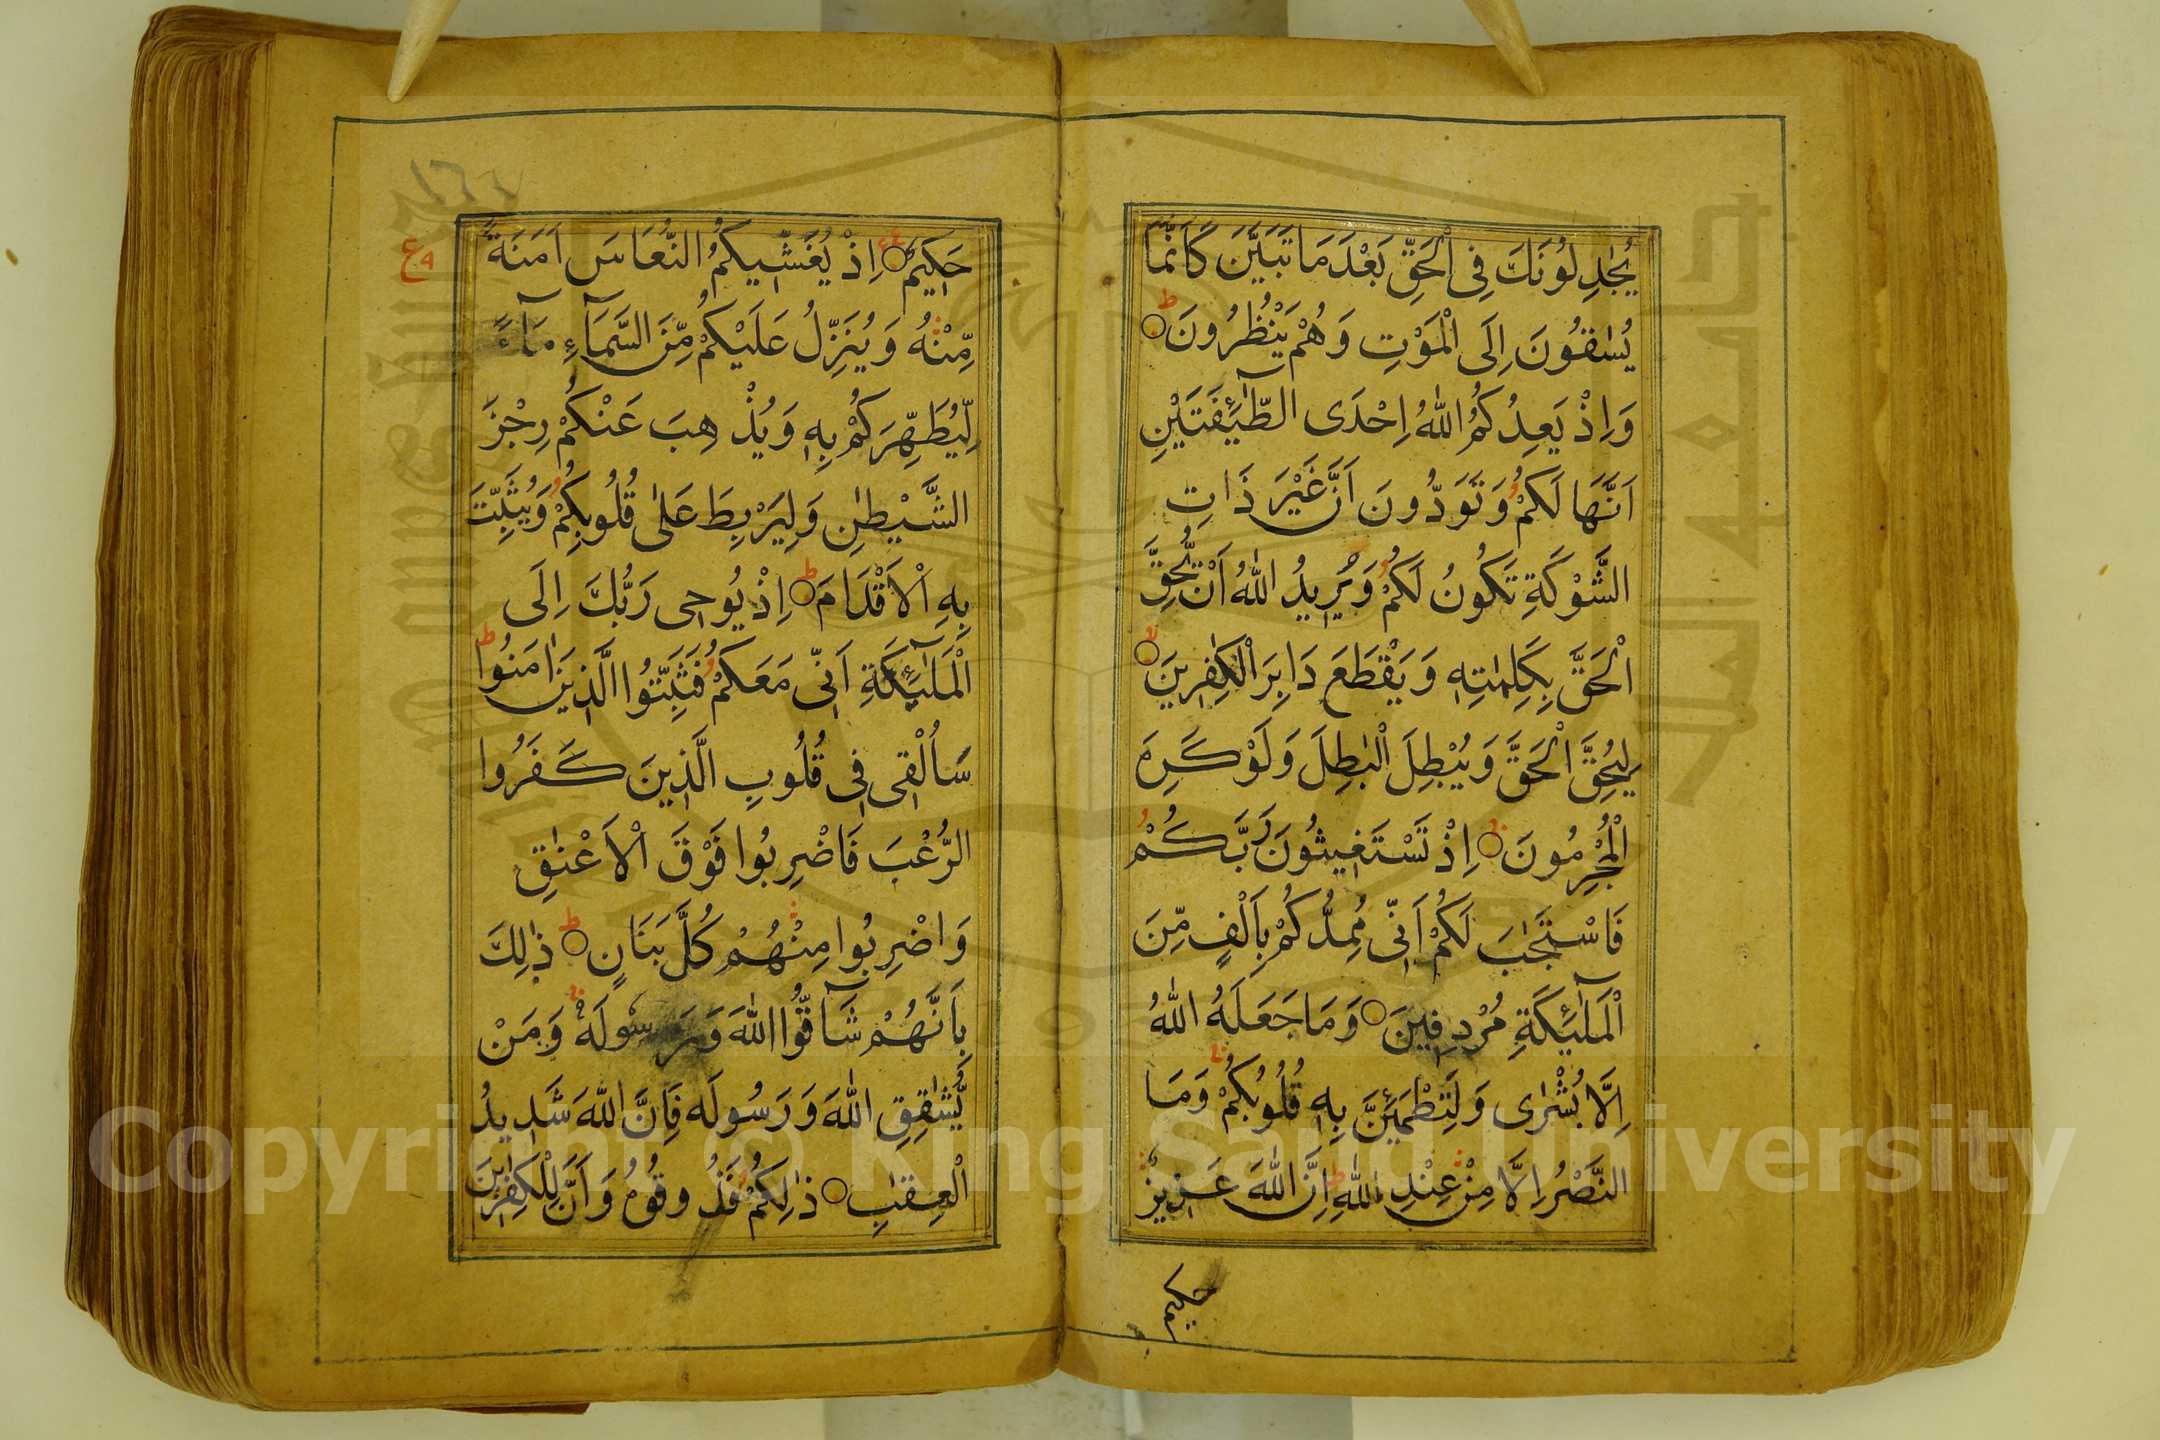 يُجَادِلُونَكَ فِى الْحَقِّ بَعْدَ مَا تَبَيَّنَ كَاَنَّمَا
يُسٰقُونَ اِلَى الْمَوْتِ وَهُمْ يَنْظُرُونَ ط
وَاِذْ يَعِدُكُمُ اللّٰهُ اِحْدَى الطَّآئِفَتَيْنِ
اَنَّهَا لَكُمْ وَتَوَدُّونَ اَنَّ غَيْرَ ذَاتِ
الشَّوْكَةِ تَكُونُ لَكُمْ وَيُرِيدُ اللّٰهُ اَنْ يُّحِقَّ
الْحَقَّ بِكَلِمٰتِهٖ وَيَقْطَعَ دَابِرَ الْكٰفِرِينَ لا
لِيُحِقَّ الْحَقَّ وَيُبْطِلَ الْبٰطِلَ وَلَوْ كَرِهَ
الْمُجْرِمُونَ اِذْ تَسْتَغِيثُونَ رَبَّكُمْ
فَاسْتَجٰبَ لَكُمْ اَنِّى مُمِدُّكُمْ بِاَلْفٍ مِّنَ
الْمَلٰٓئِكَةِ مُرْدِفِينَ وَمَا جَعَلَهُ اللّٰهُ
اِلَّا بُشْرٰى وَلِتَطْمَئِنَّ بِهٖ قُلُوبُكُمْ وَمَا
النَّصْرُ اِلَّا مِنْ عِنْدِ اللّٰهِ ط اِنَّ اللّٰهَ عَزِيزٌ
حكيم
حَكِيمٌ اِذْ يُغَشِّيكُمُ النُّعَاسَ اَمَنَةً
مِّنْهُ وَيُنَزِّلُ عَلَيْكُمْ مِّنَ السَّمَآءِ مَآءً
لِّيُطَهِّرَكُمْ بِهٖ وَيُذْهِبَ عَنْكُمْ رِجْزَ
الشَّيْطٰنِ وَلِيَرْبِطَ عَلٰى قُلُوبِكُمْ وَيُثَبِّتَ
بِهِ الْاَقْدَامَ ط اِذْ يُوحِى رَبُّكَ اِلَى
الْمَلٰٓئِكَةِ اَنِّى مَعَكُمْ فَثَبِّتُوا الَّذِينَ اٰمَنُوا ط
سَاُلْقِى فِى قُلُوبِ الَّذِينَ كَفَرُوا
الرُّعْبَ فَاضْرِبُوا فَوْقَ الْاَعْنٰقِ
وَاضْرِبُوا مِنْهُمْ كُلَّ بَنَانٍ ط ذٰلِكَ
بِاَنَّهُمْ شَآقُّوا اللّٰهَ وَرَسُولَهٗ وَمَنْ
يُّشٰقِقِ اللّٰهَ وَرَسُولَه فَاِنَّ اللّٰهَ شَدِيدُ
الْعِقٰبِ ذٰلِكُمْ فَذُوقُوهُ وَاَنَّ لِلْكٰفِرِينَ
Copyright © King Saud University